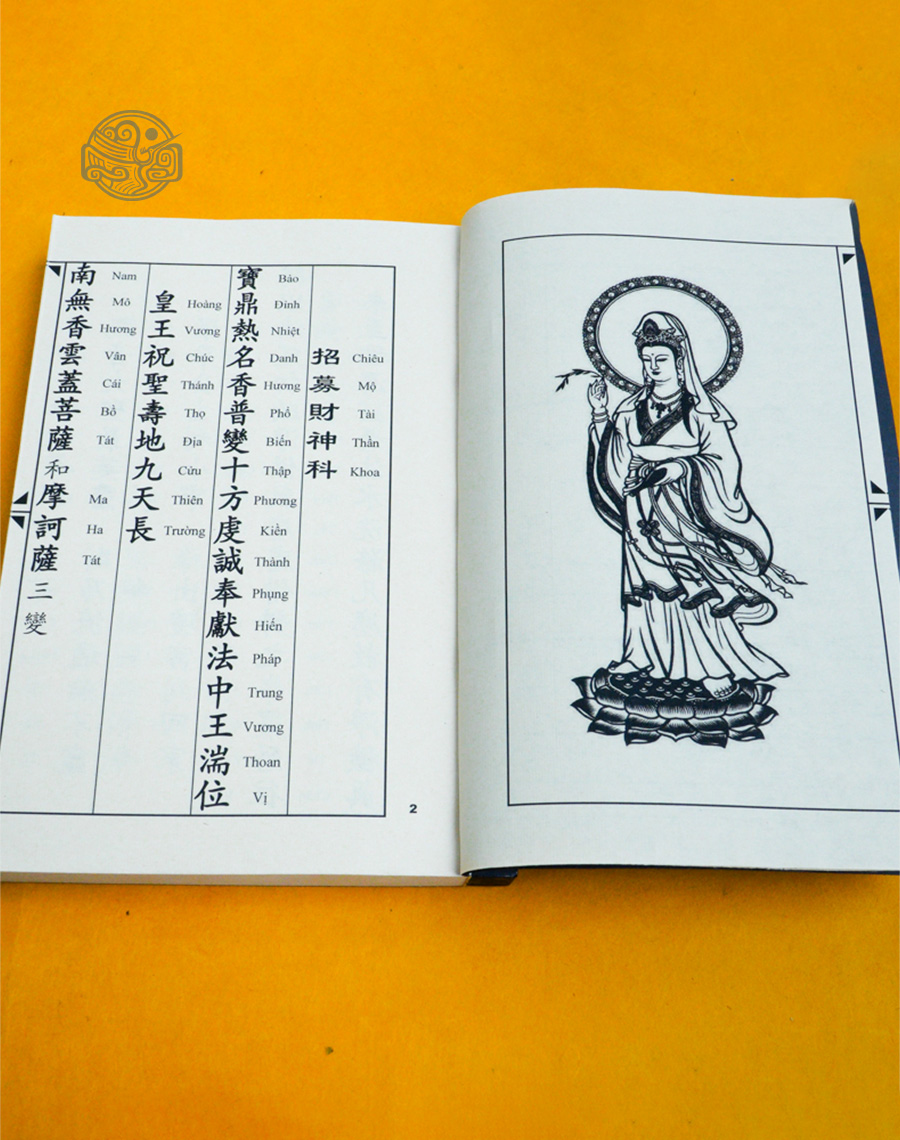 招募財神科
Chiêu Mộ Tài Thần Khoa
寶鼎熱名香普變十方虔誠奉獻法中王湍位
Bảo Đỉnh Nhiệt Danh Hương Phổ Biến Thập Phương Kiền Thành Phụng Hiến Pháp Trung Vương Thoan Vị
皇王祝聖壽地九天長
Hoàng Vương Chúc Thánh Thọ Địa Cửu Thiên Trường
南無香雲蓋菩薩和摩訶薩三變
Nam Mô Hương Vân Cái Bồ Tát Ma Ha Tát
2